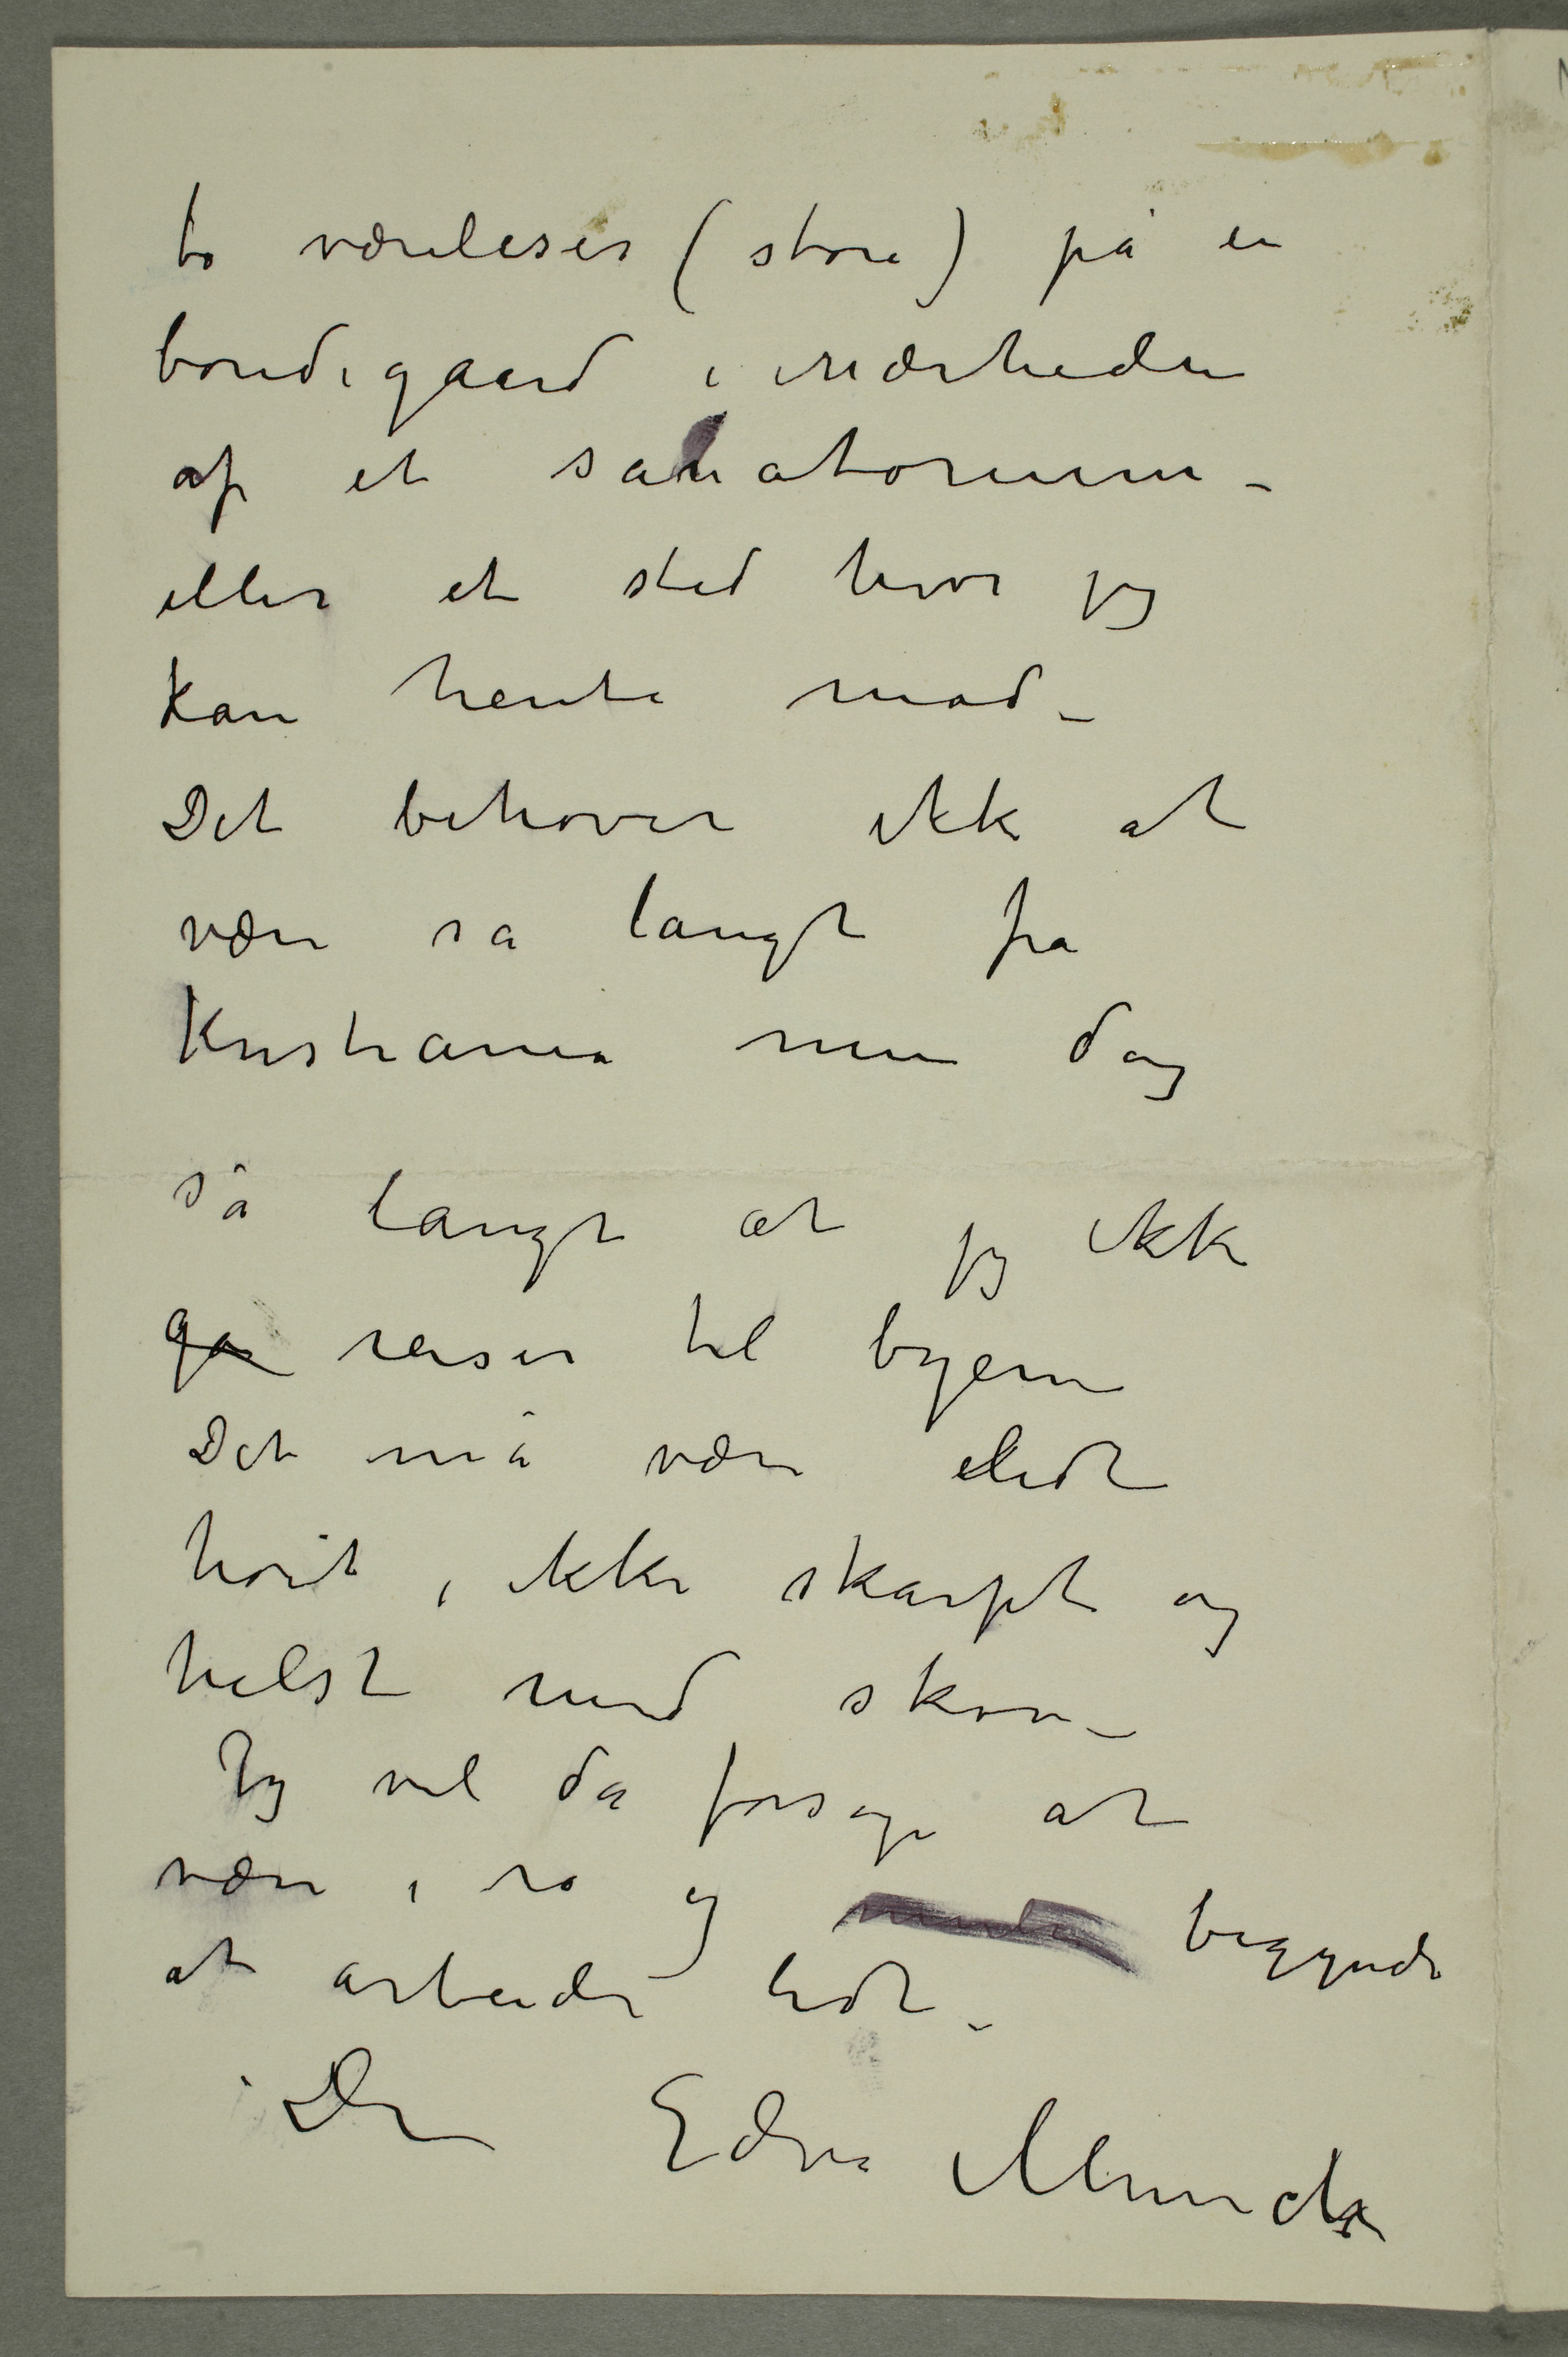 to værelser (store) på en
bondegaard i nærheden
af et sanatorium –
eller et sted hvor jeg
kan hente mad –
Det behøver ikke at
være så langt fra
Kristiania men dog
så langt at jeg ikke
går reiser til byen
Det må være lidt
høit, ikke skarpt og
helst med skov –
Jeg vil da forsøge at
være i ro og begynde
at arbeide lidt –
Din Edvard Munch